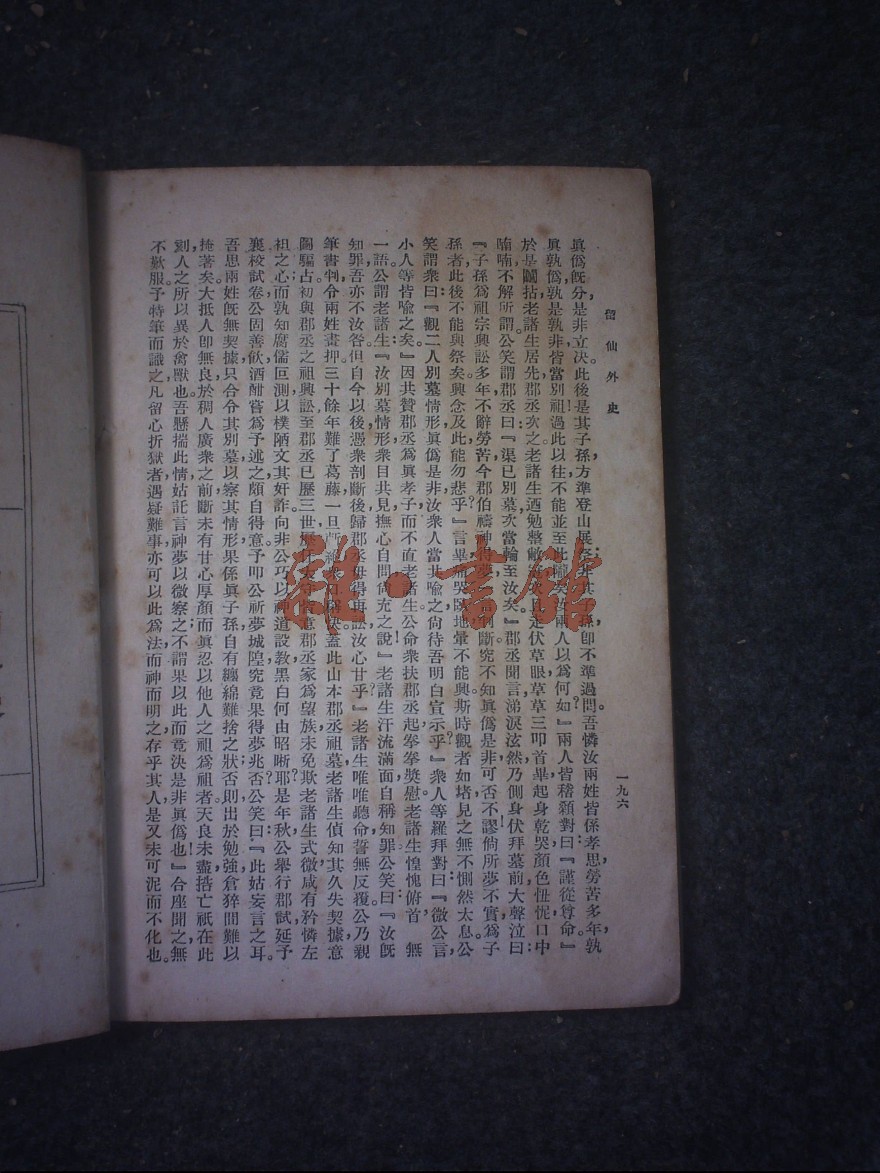 留仙外史
一九六
眞僞旣分，是非立決。此後是其子孫，方準登山展祭；非其子孫，卽不準過問。吾憐汝兩姓皆係孝思，勞苦多年，孰
眞孰僞，孰是孰非，皆當別祖，過此以往，不能並至此隴矣。汝兩人以爲何如』兩人皆稽顙對曰：『謹從尊命』
於是鬮拈老諸生居先，郡丞次之。老諸生迺勉整敝
伏草眠草草三叩首畢，起身乾哭，顏色忸怩，口中
喃喃，不解所謂。公笑謂郡丞曰：『渠已別墓，次當輪至汝矣。』郡丞聞言，涕淚泫然，乃側身伏拜墓前，大聲泣曰：
『子孫爲祖宗興訟多年，不辭勞苦，今郡伯禱神得夢，
判斷，究不知眞僞是非，可否不謬，倘所夢不實，爲子
孫者，此後不能與祭矣。興念及此，能勿悲乎？』言畢，痛哭
地，暈不能興。斯時觀者如堵，見之無不惻然太息。公
笑謂衆曰：『觀二人別墓情形，眞僞是非，汝衆人當共喩之，尙待吾明白宣示乎？』衆人等羅拜對曰：『微公言，
小人等皆喩之矣。』因共贊郡丞爲眞孝子，而不直老諸生。公命衆扶郡丞起，拳拳獎慰，老諸生惶愧俯首，無
一語。公謂老諸生：『汝別墓情形，衆目共見，撫心自問，尙充之說！』老諸生汗流滿面，自稱知罪。公笑曰：『汝旣
知罪，吾亦不汝咎。但自今以後，憑衆剖斷後，歸郡丞
得再訟，汝心甘乎？』老諸生唯唯聽命，誓無反覆。公乃親
筆書判，令兩姓畫押。三十餘年難了葛藤，一旦
蓋此山本郡丞祖墓，老諸生偵知其久失契據，意
圖騙占。初與郡丞之祖興訟，至郡丞已歷三世。
意郡丞家爲望族，未免欺老諸生式微，咸有矜憐左
袒之心，而孰知腐儒叵測，以樸陋文其奸詐。向非公巧以神道設敎，黑白何由昭晰耶？是年秋，公舉行郡試，延予
襄校試卷。公固善飮，酒酣，嘗爲予述之，頗自得意。予叩公祈夢城隍，究竟果得夢兆否？公笑曰：『此姑妄言之耳。
吾思兩姓旣無契據，只合令其別墓，以察其情形。果係眞子孫，自有纏綿難捨之狀；否則出於勉強，倉猝間難以
掩著矣。大抵人卽無良，於稠人廣衆之前，斷未有甘心厚顏而眞忍以他人之祖爲祖者。天良未盡牿亡，祇在此
刻；人之所以異於禽獸也。吾懸揣此情，姑託言神夢以微察之，不謂果以此而竟決是非眞僞也』合座聞之，無
不歎服。予特筆而識之，凡留心折獄者，遇疑難事，亦可以此爲法，而神而明之，存乎其人，是又未可泥而不化也。
雜·書館